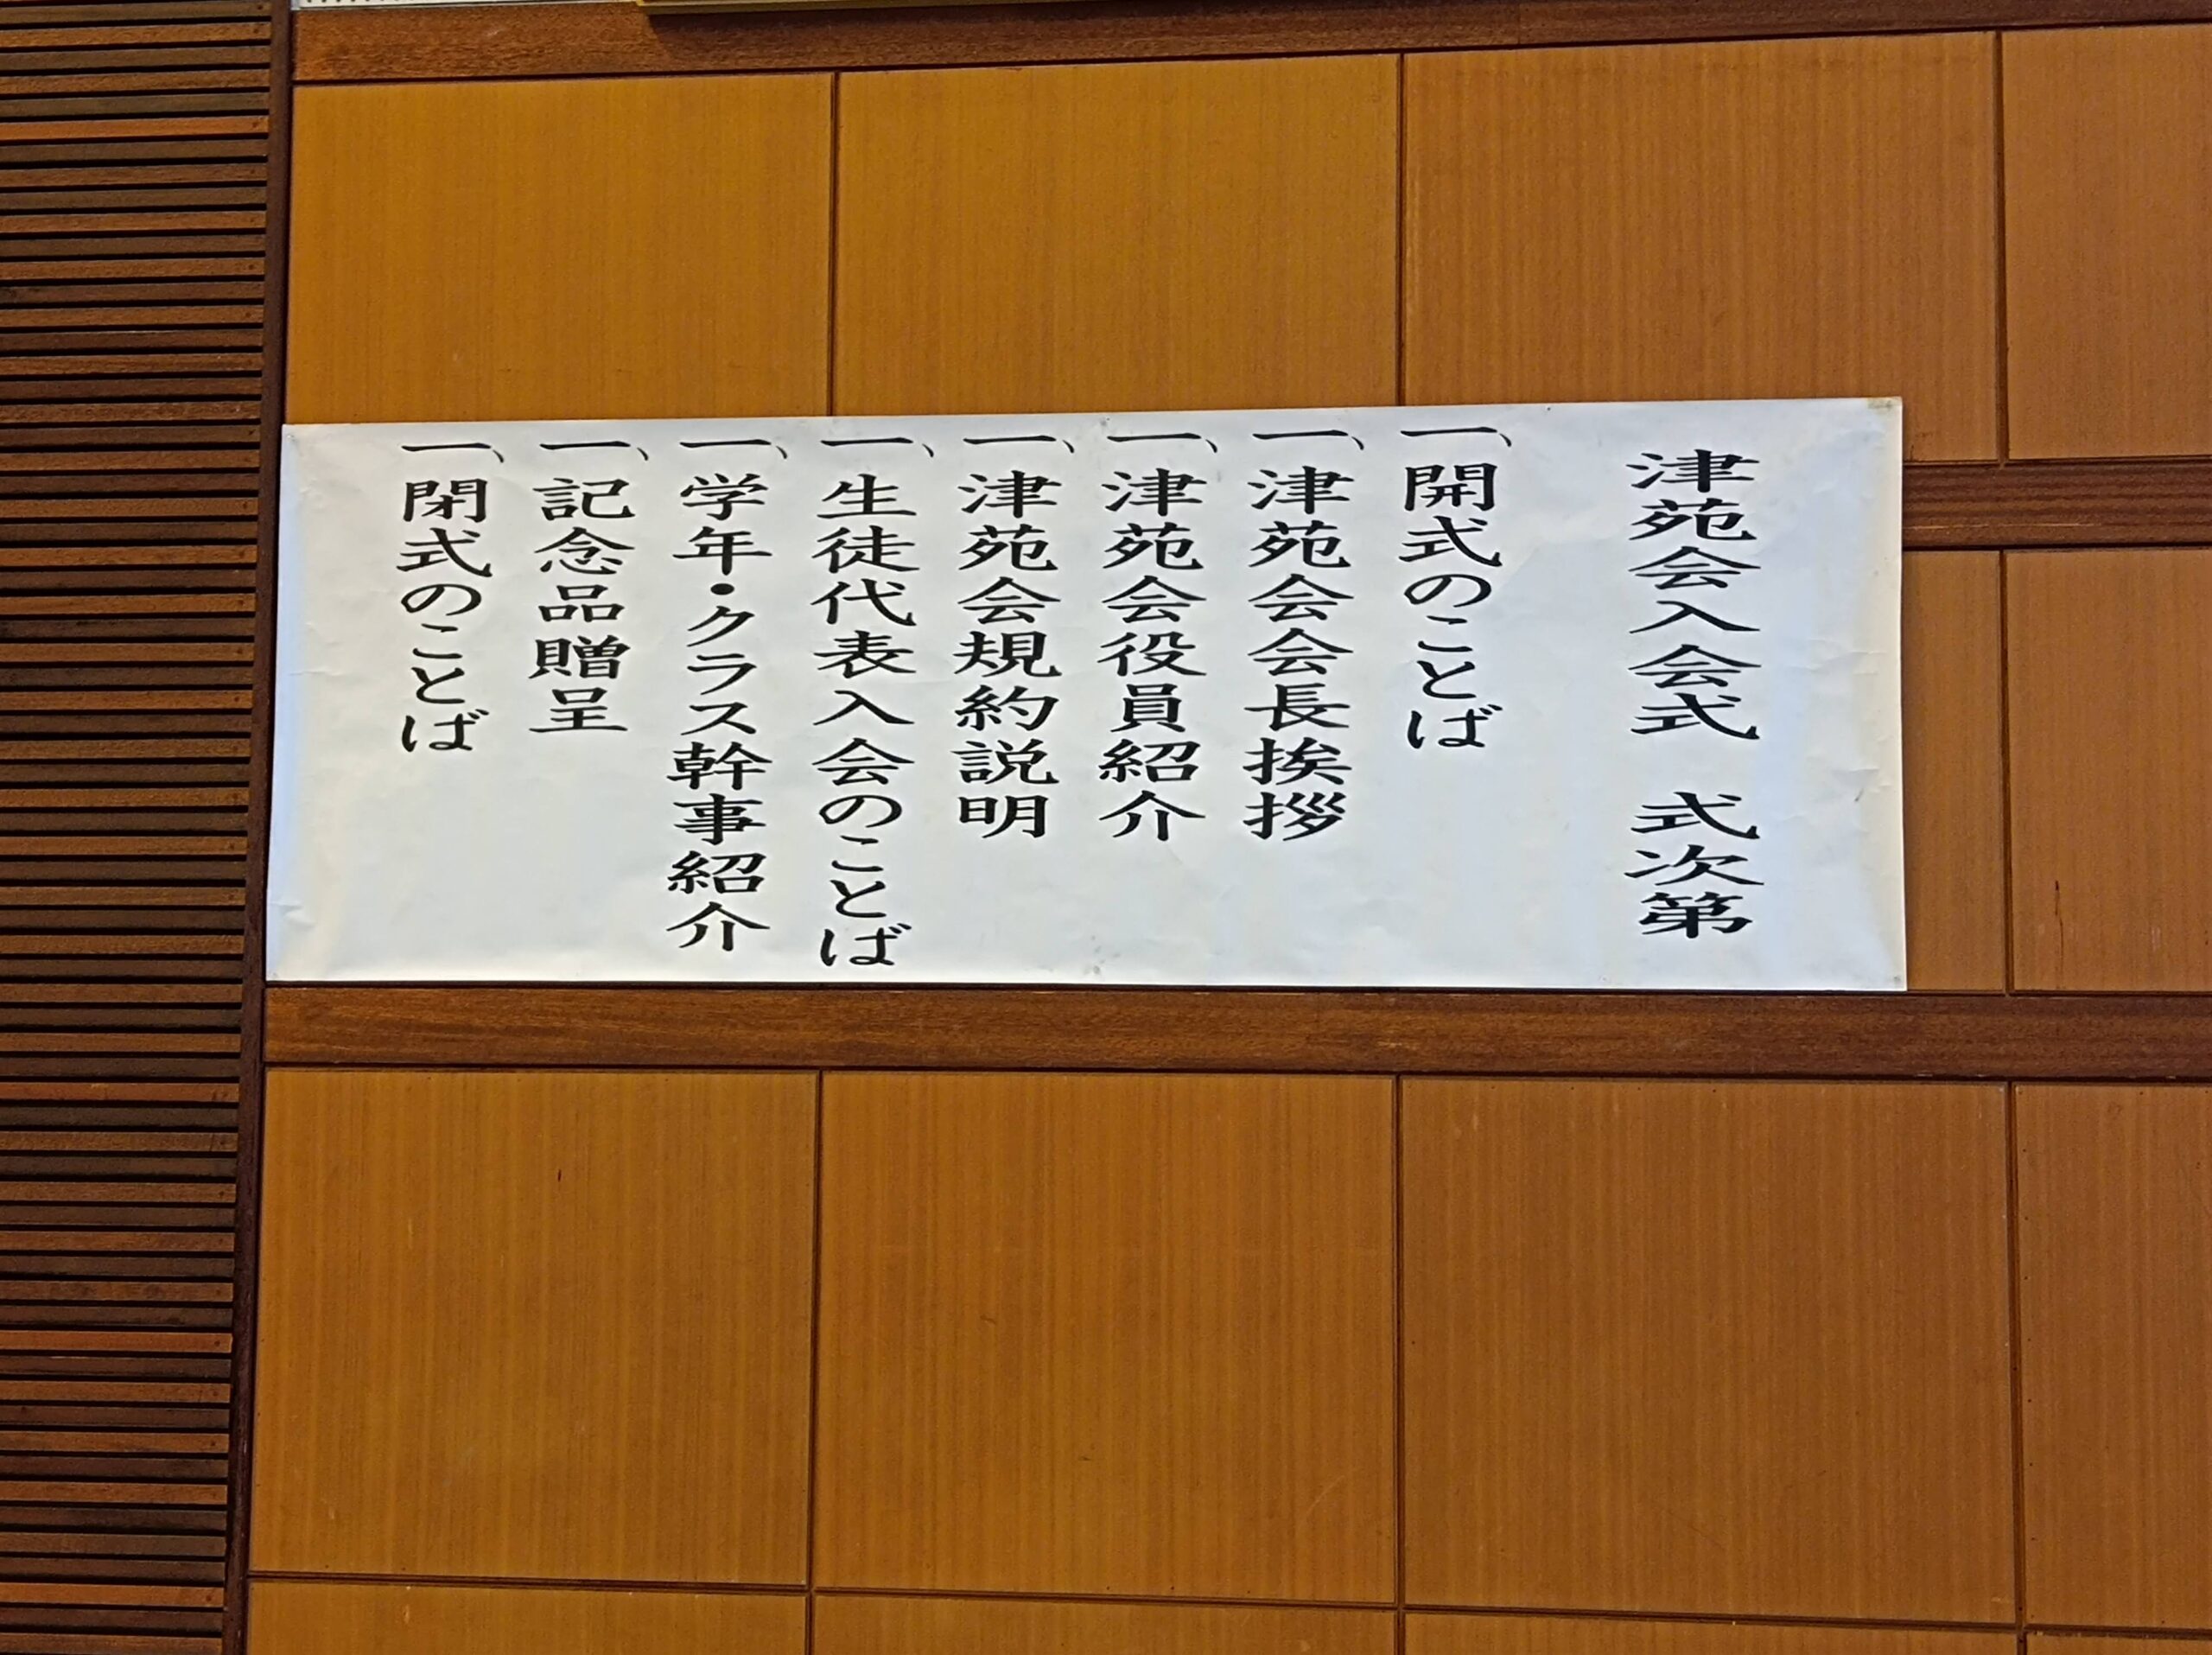 津苑会入会式　式次第
一、開式のことば
一、津苑会会長挨拶
一、津苑会役員紹介
一、津苑会規約説明
一、生徒代表入会のことば
一、学年・クラス幹事紹介
一、記念品贈呈
一、閉式のことば